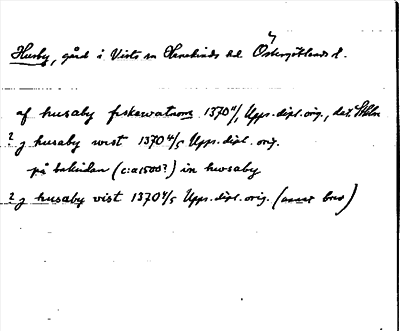 Husby, gård i Vists sn Hanekinds hd Östergötlands l.
af husaby fiskewatnom 1370 4/5 Upps. dipl. orig., dat. Sthlm
? j husaby wist 1370 4/5 Upps. dipl. orig.
på baksidan (c:a 1500?) in hwsaby
? j husaby vist 1370 4/5 Upps. dipl. orig. (annat brev)